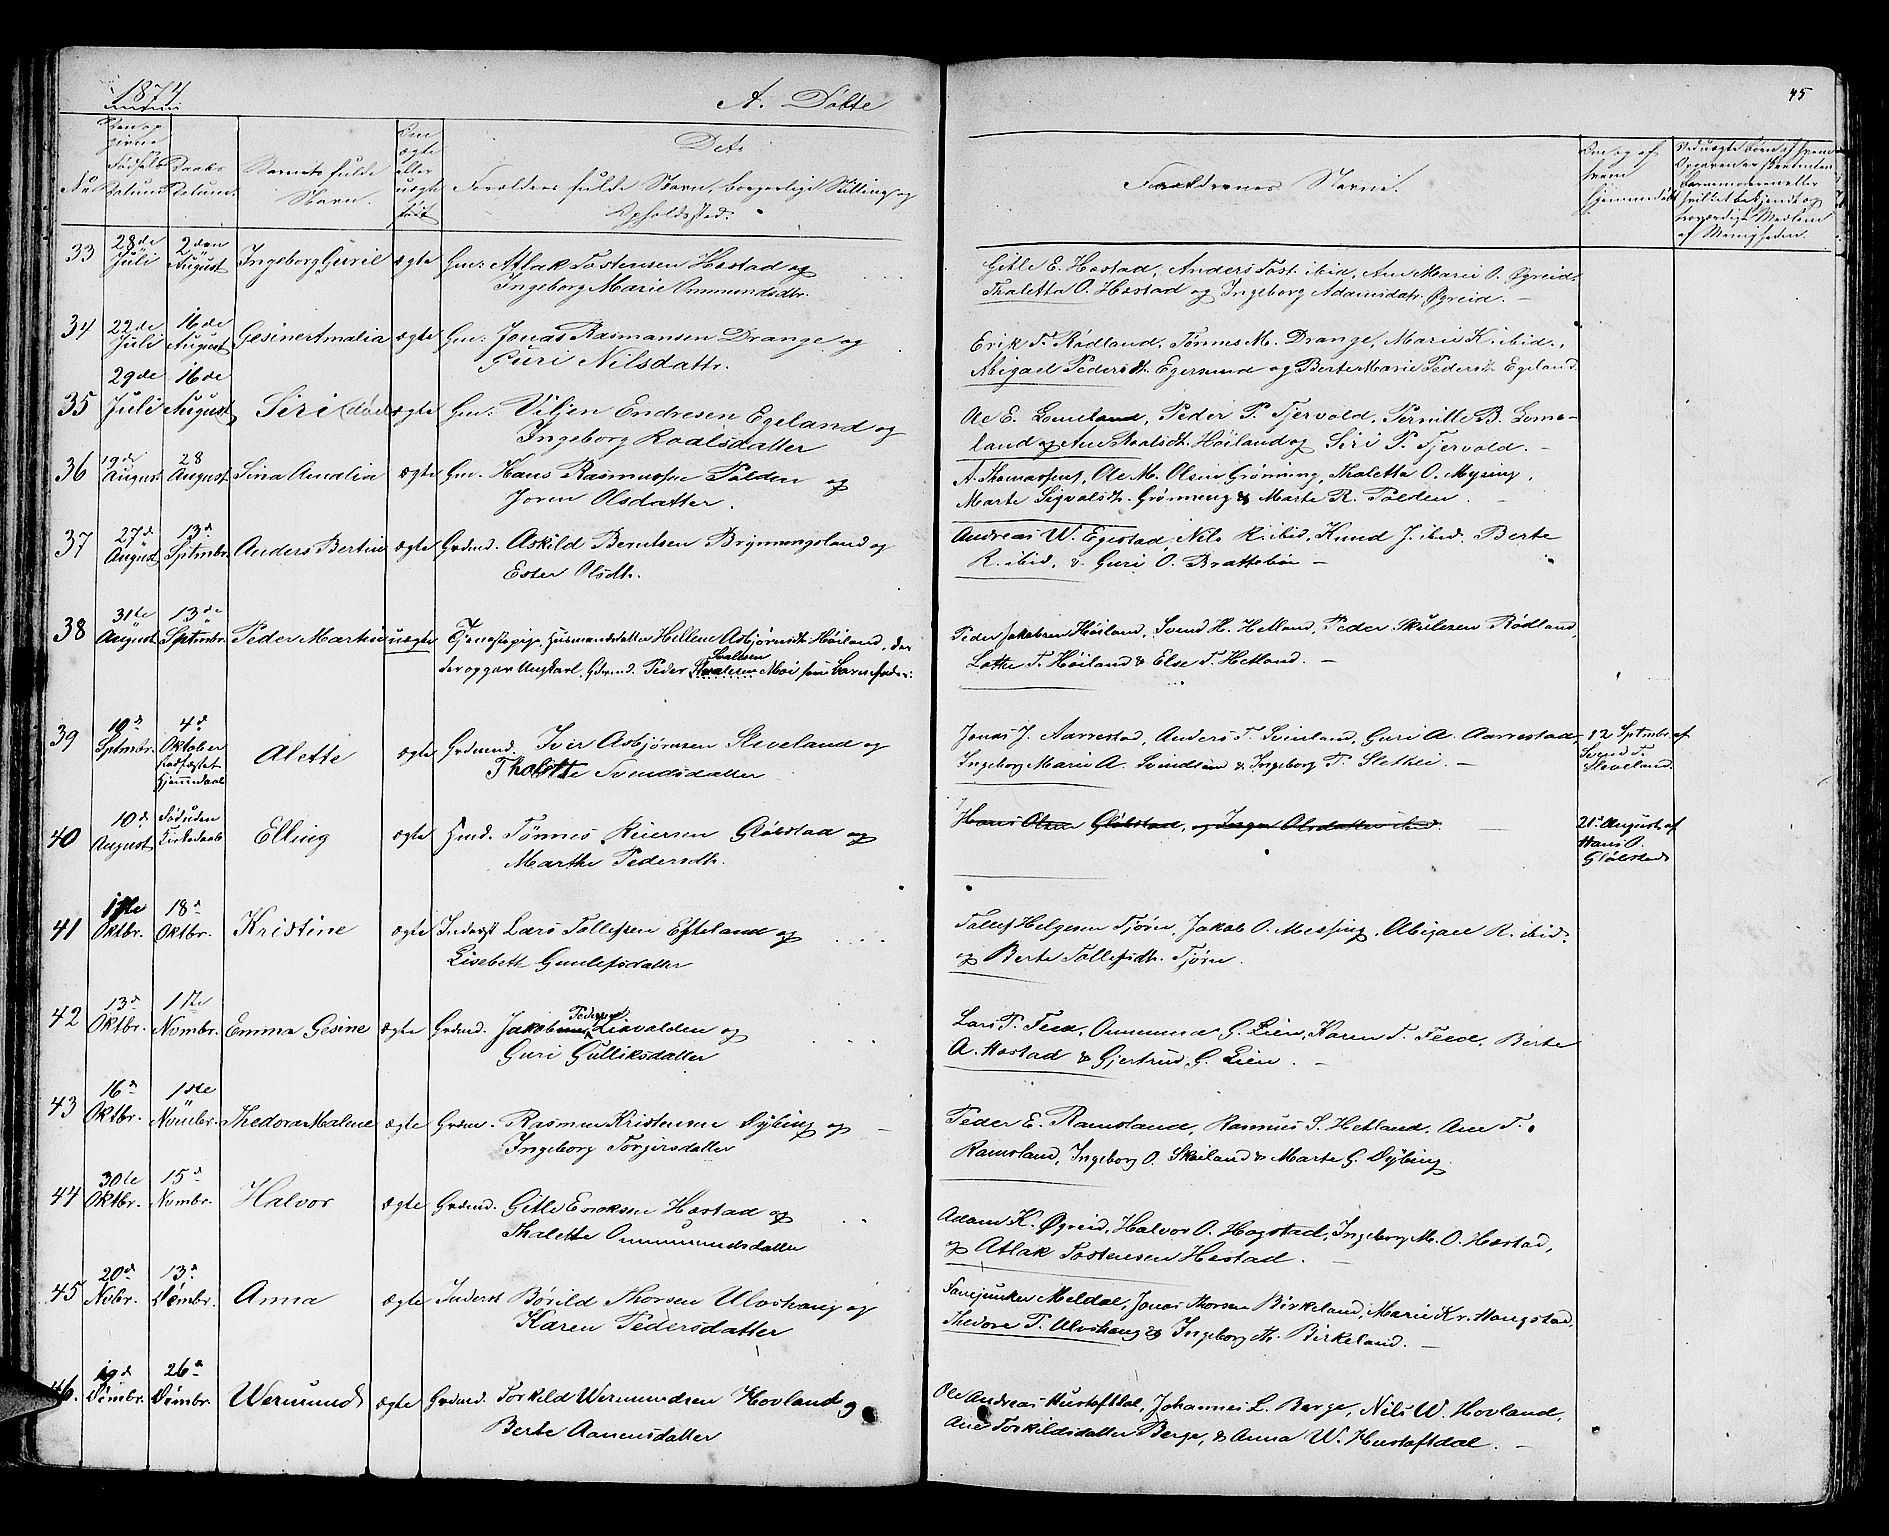 1874
A. Døbte
45
No
Daabs
Datum.
Barnets fulde
Navn.
Om
ægte
eller
uægte
født
Døbte
Forældres fulde Navn, borgerlige Stilling og
Opholdssted.
Faddernes Navne.
Om og af
hvem
hjemmedøbt
af Menigheden.
33 28de Juli 2den August Ingeborg Guril ægte Gm: Atlak Tostensen Hæstad og
Ingeborg Marie Ommundsdtr.
Gitle E. Hæstad, Anders Tost. ibid, Ane Marie O. Øgreid,
Thaletta O. Hæstad og Ingeborg Adamsdatr. Øgreid. –
34 22de Juli 16de August Gesine Amalia ægte Gm: Jonas Rasmussen Drange og
Guri Nilsdattr.
Erik T. Rødland, Tønnes M. Drange, Marie K. ibid.,
Abigael Pedersdt. Egersund og Berte Marie Pedersdt. Egeland.
35 29de Juli 16de August Siri ægte Gm: Viljen Endresen Egeland og
Ingeborg Roalsdatter
Ole E. Lomeland, Peder P. Tjervold, Pernille B. Lome-
land og Ane Roalsdt. Høiland og Siri P. Tjervold. –
36 19de August 28 August Sina Amalia ægte Gm. Hans Rasmussen Polden og
Joren Olsdatter.
A. Thomassens, Ole M. Olsen Grønning, Thaletta O. Mysing,
Marte Sigvalsdt. Grønning & Marte R. Polden. –
37 27d August 13d Sptmbr. Anders Bertin ægte Grdmd. Askild Berntsen Brynningsland og
Ester Olsdtr.
Andreas W. Egestad, Nils R. ibid, Knud J. ibid. Berte
R. ibid, & Guri O. Brattebøe –
38 31te August 13de Sptmbr. Peder Martin uægte Tjenestepige, Husmandsdatter Hellene Asbjørnsdt. Høiland, der
Svalesen
der opgav Ungkarl, Gdrmd. Peder Moi som Barnefader.
Peder Jakobsen Høiland, Svend H. Hetland, Peder Skulesen Rødland,
Lothe T. Høiland & Else T. Hetland. –
39 10d Sptmbr. 4d Oktober
stadfæstet
Hjemmedaab
Alette ægte Grdmnd. Iver Asbjørnsen Sleveland og
Tholette Svendsdatter
Jonas J. Aarrestad, Anders T. Svinland, Guri A. Aarrestad,
Ingeborg Marie A. Svindland & Ingeborg T. Slettei. –
12 Sptmbr. af
Svend T.
Sleveland.
40 10d August Død uden
Kirkedaab
Elling ægte Hmd. Tønnes Reiersen Gløbstad og
Marthe Pedersdtr.
Hans Olsen Gløbstad, og Inger Olsdatter ibid.
21d August af
Hans O.
Gløbstad
41 Oktbr. 18d Oktbr. Kristine ægte Inderst Lars Tollefsen Efteland og
Lisebett Gunlefsdatter
Tollef Helgesen Tjørn, Jakob O. Messing, Abigael R. ibid.
og Berte Tollefsdtr. Tjørn.
42 13d Oktbr. 1ste Nvmbr. Emma Gesine ægte Grdmd. Jakob Pedersen Liavalden og
Guri Gulliksdatter
Lars P. Feed, Ommund G. Lien, Karen T. Feed, Berte
A. Hæstad & Gjertrud G. Lien. –
43 16d Oktbr. 1ste Nvmbr. Thedora Malene ægte Grdmd. Rasmus Kristensen Dybing og
Ingeborg Torgersdatter
Peder E. Ramsland, Rasmus S. Hetland, Ane T.
Ramsland, Ingeborg O. Skeiland & Marte G. Dybing.
44 30te Oktbr. 15d Nvmbr. Halvor ægte Grdmd. Gitle Eriksen Hæstad og
Thalette Ommundsdatter
Adam K. Øgreid, Halvor O. Hogstad, Ingeborg M. O. Hæstad,
og Atlak Tostensen Hæstad.
45 20d Nvbr. 13d Dsmbr. Anna ægte Inderst Børild Thorsen Ulvshaug og
Karen Pedersdatter
Fanejunker Meldal, Jonas Thorsen Birkeland, Marie Kr. Haugstad,
Thedore T. Ulvshaug og Ingeborg Th. Birkeland. –
46. 19d Dsmbr. 26d Dsmbr. Wermund ægte Grdmd. Torkild Wermundsen Hovland og
Berte Aanensdatter
Ole Andreas Hustoftdal, Johannes L. Berge, Nils W. Hovland,
Ane Torkildsdatter Berge, & Anna W. Hustoftdal. –